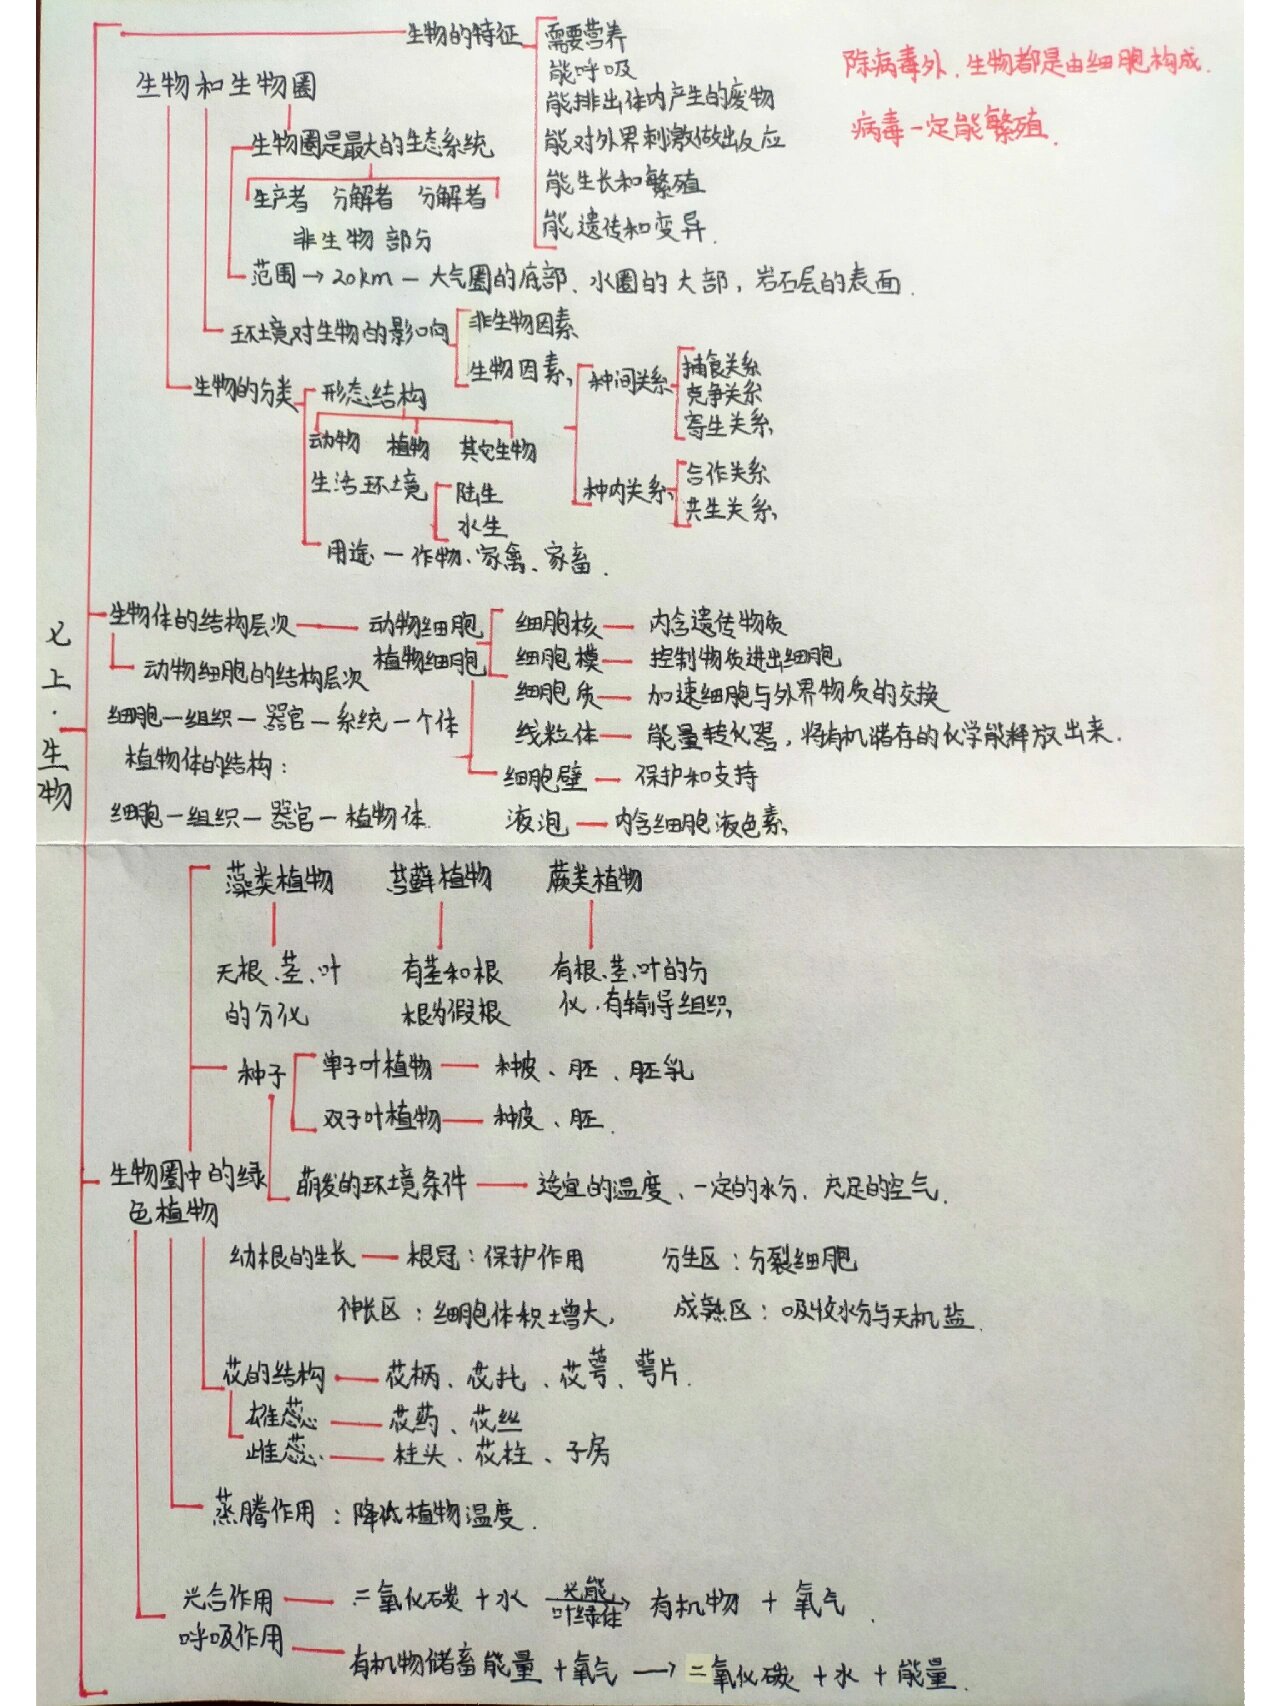 生物的特征
需要营养
能呼吸
能排出体内产生的废物
能对外界刺激做出反应
能生长和繁殖
能遗传和变异.
除病毒外、生物都是由细胞构成.
病毒一定能繁殖.
生物和生物圈
生物圈是最大的生态系统
生产者 分解者 分解者
非生物部分
范围→20km — 大气圈的底部、水圈的大部,岩石层的表面.
环境对生物的影响
非生物因素
生物因素
种间关系
捕食关系
竞争关系
寄生关系
种内关系
合作关系
共生关系
生物的分类
形态结构
动物 植物 其它生物
生活环境
陆生
水生
用途 — 作物、家禽、家畜.
七上·生物
生物体的结构层次 — 动物细胞
植物细胞
动物细胞的结构层次
细胞—组织—器官—系统—个体
植物体的结构:
细胞—组织—器官—植物体.
细胞核 — 内含遗传物质
细胞模 — 控制物质进出细胞
细胞质 — 加速细胞与外界物质的交换
线粒体 — 能量转化器,将有机储存的化学能释放出来.
细胞壁 — 保护和支持
液泡 — 内含细胞液色素
藻类植物 苔藓植物 蕨类植物
无根、茎、叶 有茎和根 有根、茎、叶的分
的分化 根为假根 化、有输导组织
种子
单子叶植物 — 种皮、胚、胚乳
双子叶植物 — 种皮、胚.
萌发的环境条件 — 适宜的温度、一定的水分、充足的空气.
生物圈中的绿
色植物
幼根的生长 — 根冠:保护作用 分生区:分裂细胞
伸长区:细胞体积增大, 成熟区:吸收水分与无机盐.
花的结构 — 花柄、花托、花萼、萼片.
雄蕊 — 花药、花丝
雌蕊 — 柱头、花柱、子房
蒸腾作用:降低植物温度.
光合作用 — 二氧化碳+水 光能 叶绿体→ 有机物+氧气.
呼吸作用
有机物储畜能量+氧气→二氧化碳+水+能量.